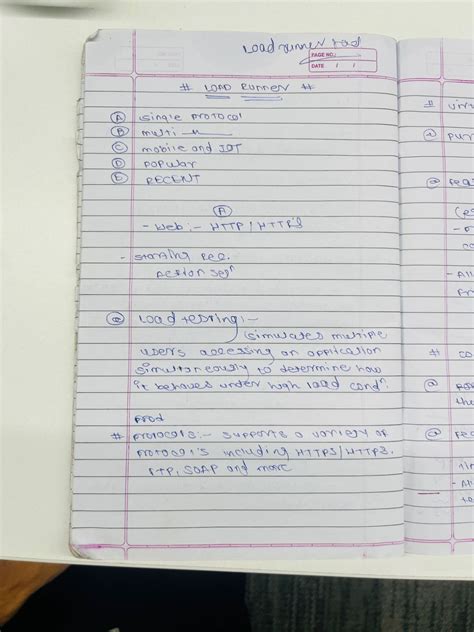 Load runner tool
PAGE NO.:
DATE: / /
# LOAD RUNNER #
(A) Single Protocol
(B) multi —〃—
(C) mobile and IOT
(D) POPULAR
(E) RECENT
(A)
- Web :- HTTP / HTTP'S
- Starting Rec.
Action Seg^n
@ Load testing :-
Simulates multiple
users accessing an application
simultaneously to determine how
it behaves under high load cond^n.
Prod
# Protocols :- Supports a variety of
protocol's including HTTPS / HTTPS,
FTP, SOAP and more